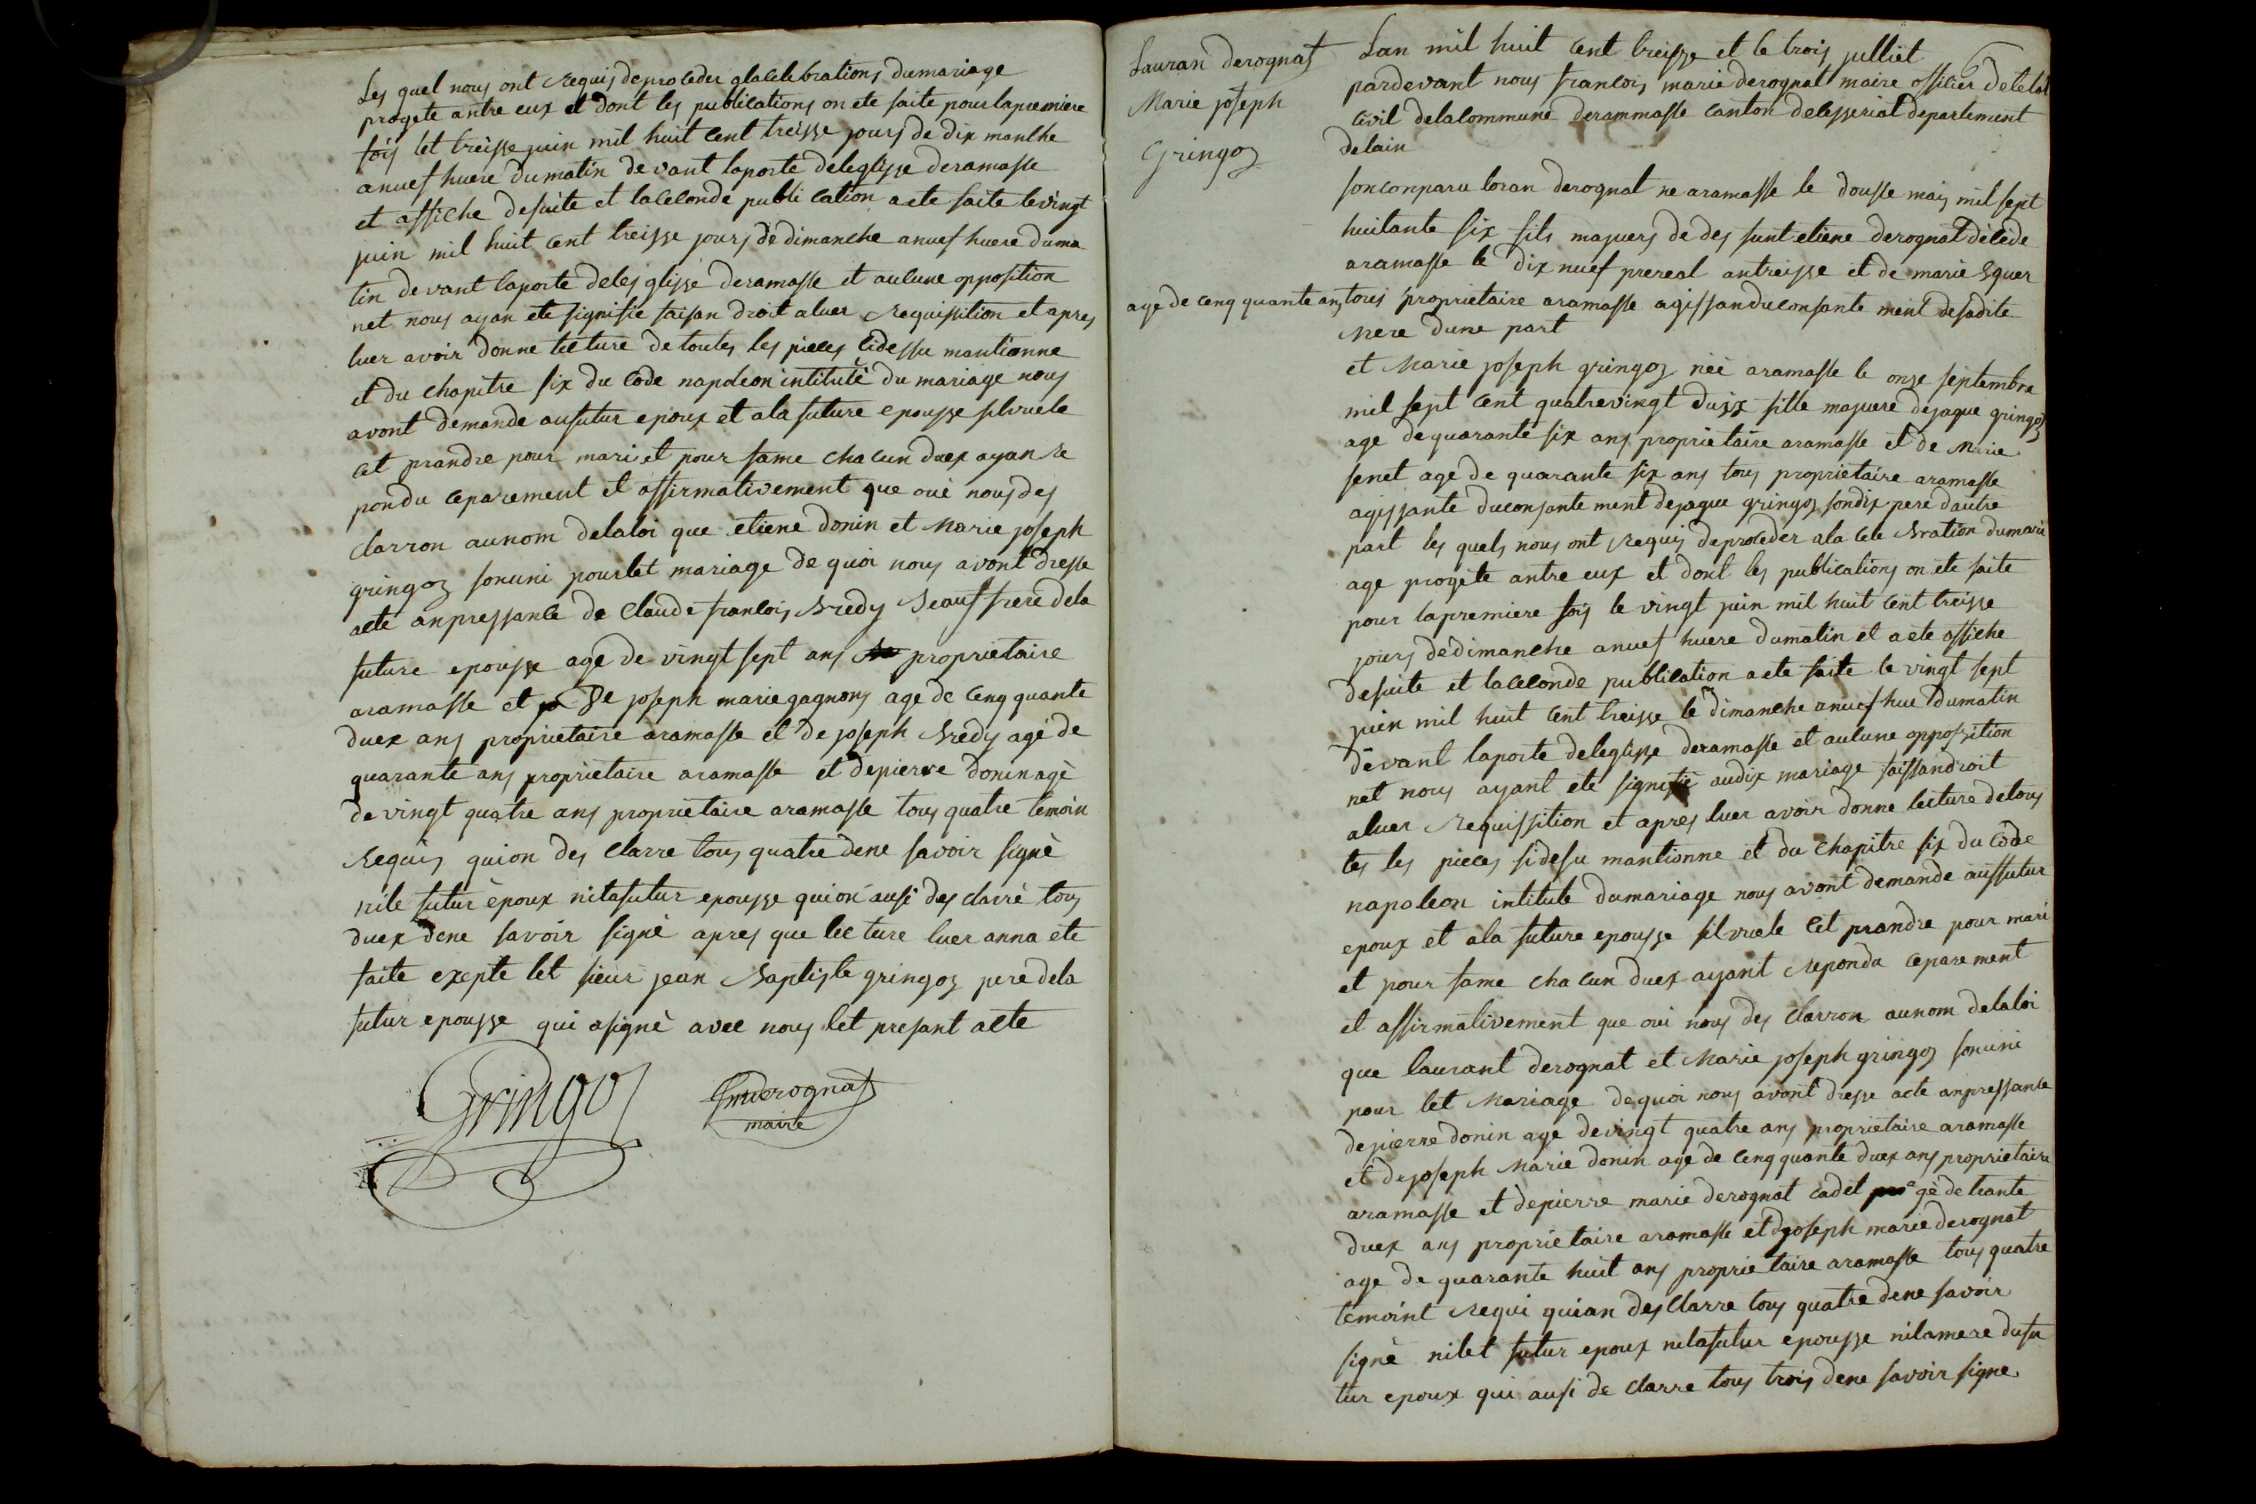 Les quel nous ont requis de proceder alacelebrations dumariage
progete antre eux et dont les publications on ete faite pourlapremiere
fois let treisse juin mil huit cent treisse jours de dix manche
anuef huere dumatin devant laporte deleglisse deramasse
et affiche desuite et laceconde publication aete faite levingt
juin mil huit cent treisse jours de dimanche anuef huere duma
tin devant laporte deleglisse deramasse et aucune opposition
net nous ayan ete signifie faisan droit aluer requisition et apres
luer avoir donne lecture de toutes les pieces cidessu mantionne
et du chapitre six du Code napoleon intitulé du mariage nous
avont demande aufutur epoux et ala future epousse silvuele
cet prandre pour mari et pour fame chacun duex ayan re
pondu ceparement et affirmativement que oui nous des
clarron aunom delaloi que etiene donin et Marie joseph
gringoz sonuni pourlet mariage de quoi nous avont dresse
acte anpressance de Claude francois Bredy Beauf frere dela
future epousse age de vingt sept ans proprietaire
aramasse et De joseph marie gagnons age de cenq quante
duex ans proprietaire aramasse et De joseph Bredy agé de
quarante ans proprietaire aramasse et depierre doninagé
de vingt quatre ans proprietaire aramasse tous quatre temoin
requis quion des clarre tous quatre dene savoir signé
nile futur époux nilafutur epousse quion ausi des clarré tous
duex dene savoir signé apres que lecture luer anna ete
faite expte let sieur jean Baptiste gringoz pere dela
futur epousse qui asigné avec nous let presant acte
Gringoz
fmderognat
maire
6
Lauran derognat
Marie joseph
Gringoz
Lan mil huit cent treisse et le trois julliet
pardevant nous francois marie derognat maire officier deletat
civil delacommune derammasse canton decesseriat departement
delain
sonconparu loran derognat ne aramasse le dousse mais mil sept
huitante six fils majuers de des funt etiene derognat décéde
aramasse le dix nuef prereal antreisse et de marie Equer
age de cenq quante ans tous proprietaire aramasse agissanduconsante ment desadite
Mere dune part
et Marie joseph gringoz neé aramasse le onze septembre
mil sept cent quatrevingt duix fille majuere dejaque gringoz
age dequarante six ans proprietaire aramasse et de Marie
fenet age de quarante six ans tous proprietaire aramasse
agissante duconsante ment dejaque gringoz sondix pere dautre
part les quels nous ont requis deproceder ala cele Bration dumari
age progete antre eux et dont les publications on ete faite
pour lapremiere fois le vingt juin mil huit cent treisse
jours dedimanche anuef huere dumatin et aete affiche
desuite et laceconde publication aete faite le vingt sept
juin mil huit cent treisse le dimanche anuef hue dumatin
devant laporte deleglisse deramasse et aucune oppozition
net nous ayant ete signifié audix mariage faissandroit
aluer requissition et apres luer avoir donne lecture detous
tes les pieces sidesu mantionne et du chapitre six du Code
napoleon intitule dumariage nous avont demande aussutur
epoux et ala future epousse silvuele cet prandre pour mari
et pour fame chacun duex ayant repondu ceparement
et affirmativement que oui nous des clarron aunom delaloi
que laurant derognat et Marie joseph gringoz sonuni
pour let Mariage dequoi nous avont dresse acte anpressance
depierre donin age devingt quatre ans proprietaire aramasse
et dejoseph Marie donin age de cenq quante duex ans proprietaire
aramasse et depierre marie derognat cadet gé de trante
duex ans proprietaire aramasse et dejoseph marie derognat
age de quarante huit ans proprietaire aramasse tous quatre
temoint requi quian desclarre tous quatre dene savoir
signé nilet futur epoux nilafutur epousse nilamere dufu
tur epoux qui ausi de clarre tous trois dene savoir signe